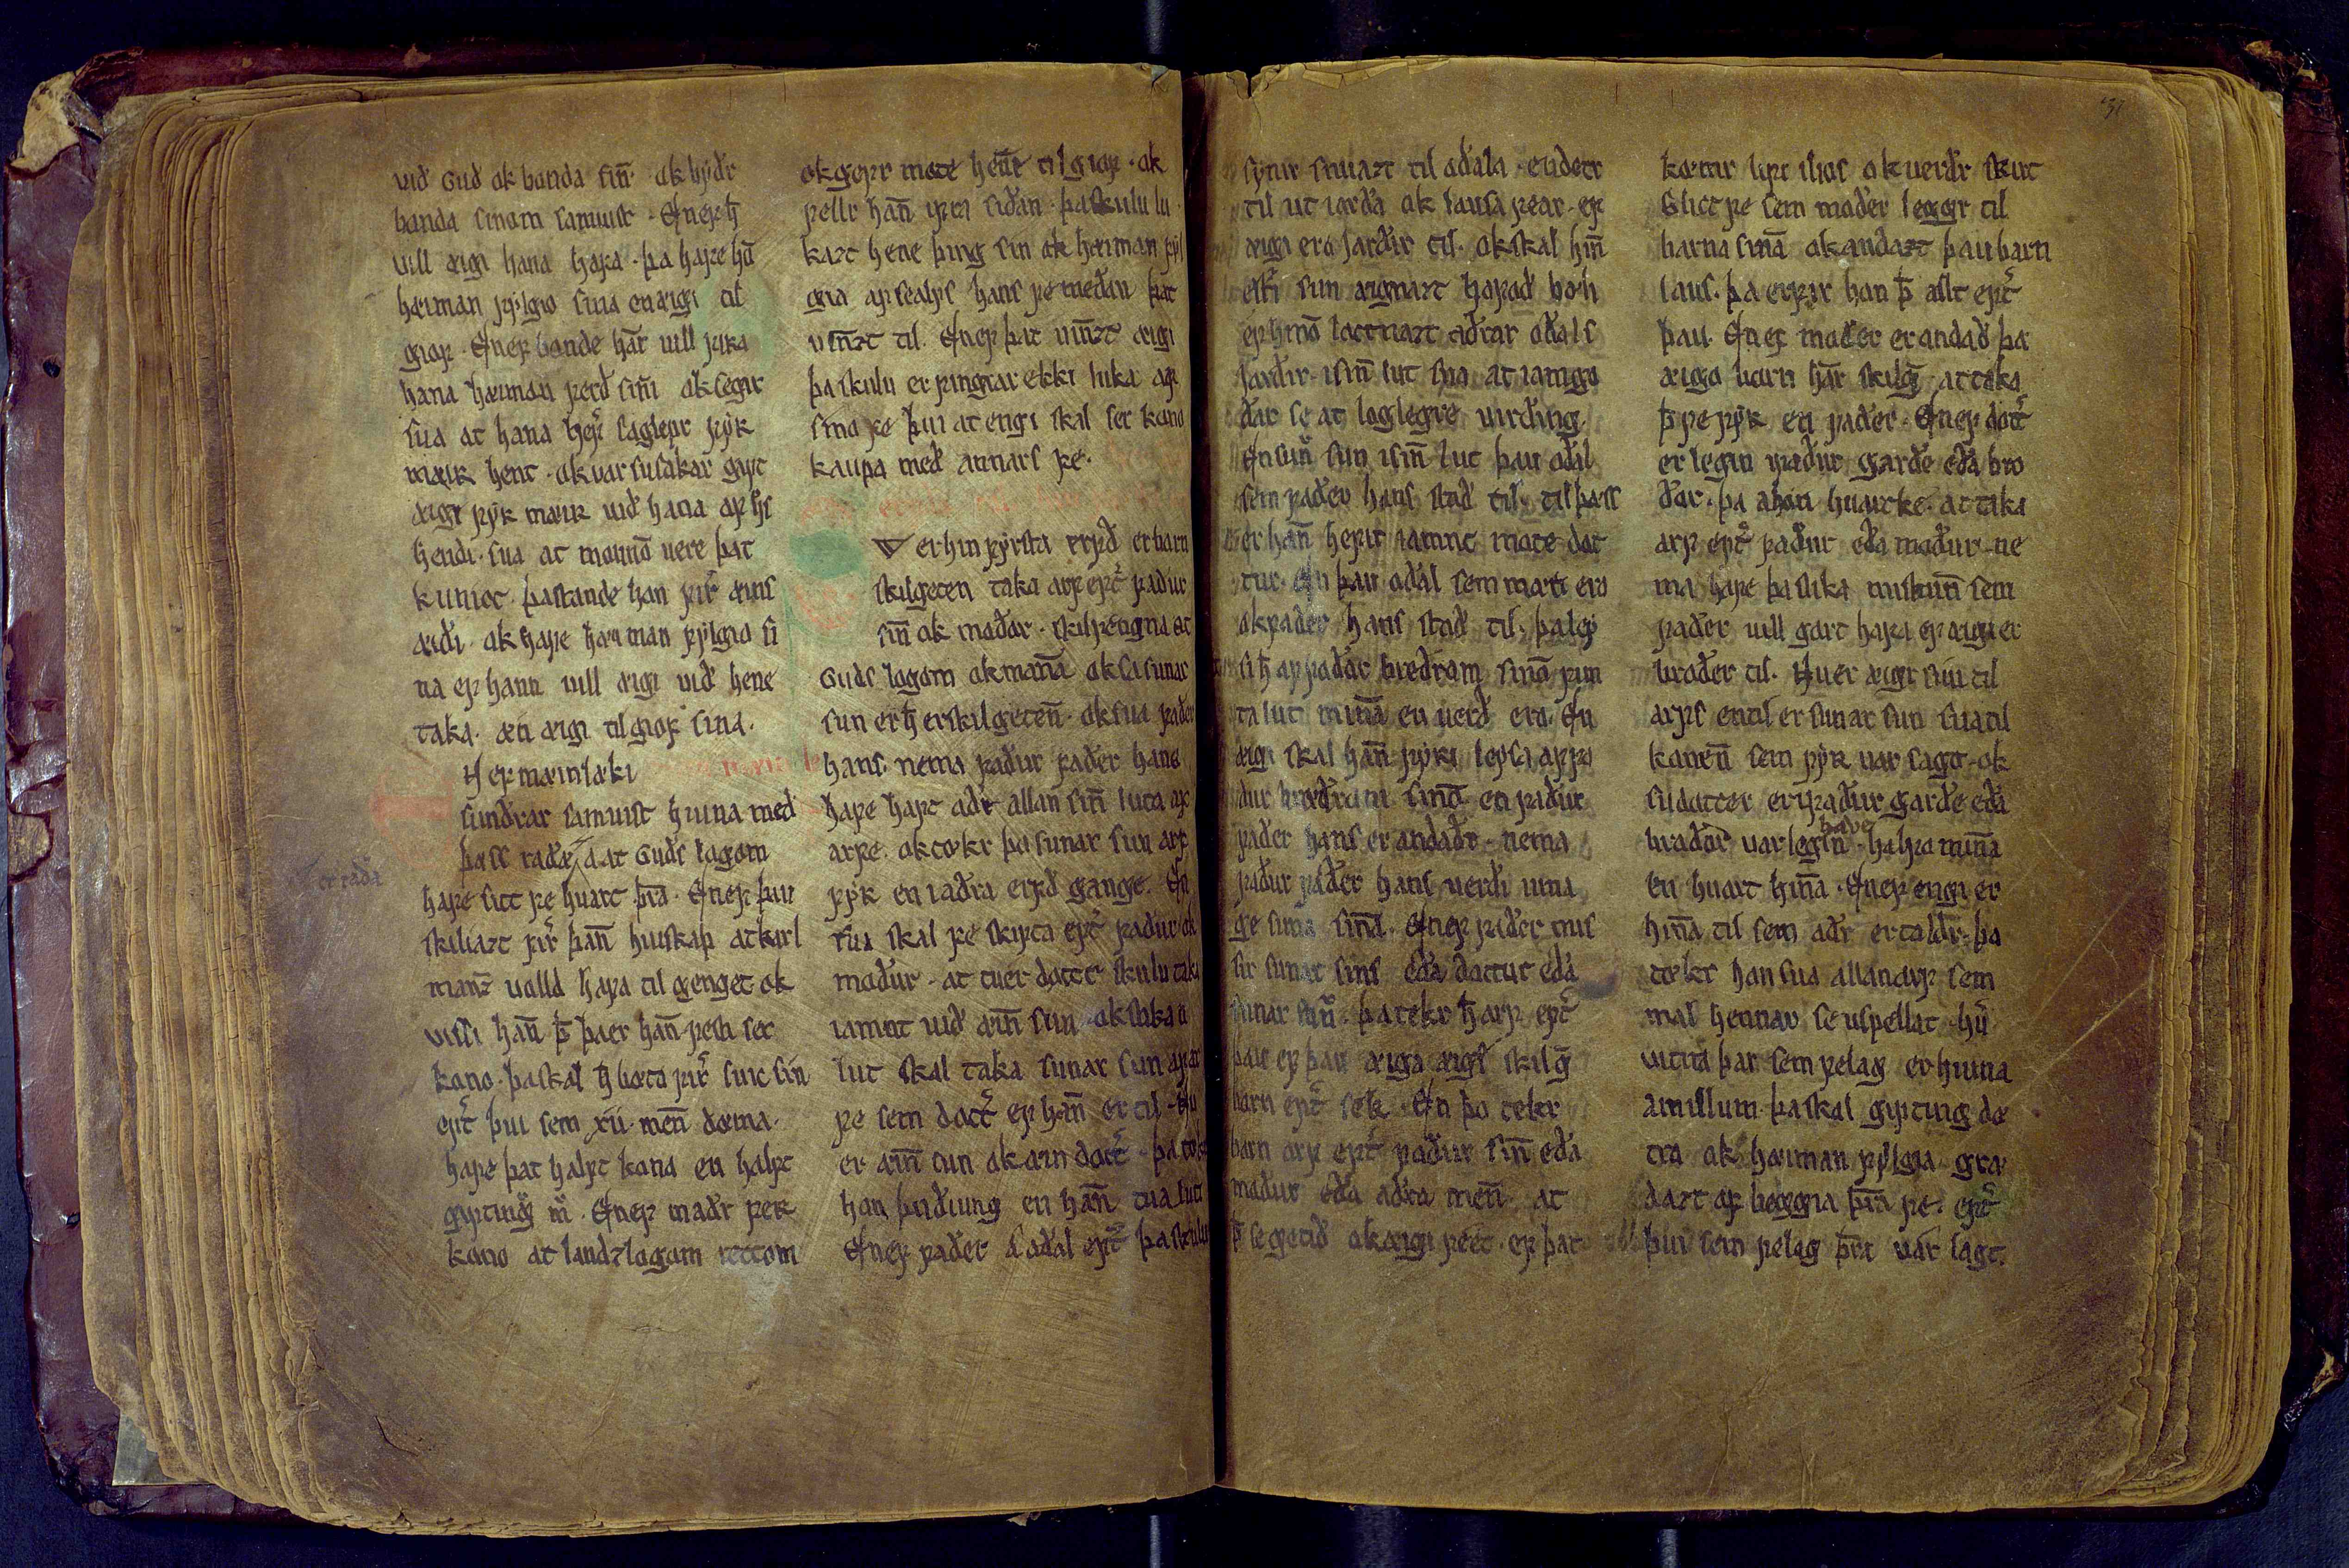 uið guð ok bonda sin̄ ok lyðr
bonda sinom samuist · En ef h̄
uill æigi hana hafa · þa hafe hō
hæiman fylgio sina en æigi til
giof · En ef bonde hār uill fuka
hana hæiman ferð sin̄i ok segir
sua at hana hefir saglefr fyk
mæik hent · ok var su sakar gift
æigi fyk mæik uið hana af hs
hendi · sua at monnō uere þat
kunict · þa stande han fir æins
æiði · ok hafe hæiman fylgio si
na ef hann uill æigi uið hene
taka · æn æigi til giof sina ·
H ef mæinlæki
sundrar samuist hiuna með
þæss raða at Guðs lagom
et raða
hafe sitt fe huart þra · En ef þau
skiliazt fir þan̄ hiuskap at karl
manz ualld hafa til genget ok
uissi han̄ þ̄ þa er han̄ festi ser
kono · þa skal h̄ bœta fir suic sin
eft þui sem xii · men̄ dœma ·
hafe þat halft kona en halft
gifting m̄ · En ef maðr fek
kono at landzlagom rettom
ok gefr mote hen̄e til giof · ok
fellr han̄ yfra siðan · þa skulu lu
kazt hene þing sin ok hæiman fyl
gia af sealfs hans fe meðan þat
uin̄zt til · En ef þat uin̄zt æigi
þa skulu erfingiar ekki luka af
sino fe þui at engi skal ser kono
kaupa með annars fe ·
V er hin fyrsta erfð er barn
skilgeten taka arf eft faður
sin̄ ok moðor · skilfengna at
Guðs lagom ok man̄a ok sa sunar
sun er h̄ er skilgeten̄ · ok sua faðer
hans · nema faður faðer hans
hafe haft aðr allan sin̄ luta af
arfe · ok tœkr þa sunar sun arf
fyk en iaðra erfð gange · En
sua skal fe skifta eft faður ok
moður · at tuer dotter skulu taka
iamnt uið æin̄ sun · ok slikan
lut skal taka sunar sun af ar
fe sem dott ef han̄ er til · Nu
er æin̄ sun ok æin dott · þa tœkr
han þriðiung en han̄ tua luti
En ef faðer a oðal eft þa skulu
synir snuazt til oðala · en dotr
til ut iarða ok lausa fear · ef
æigi ero iarðir til · ok skal hin̄
elsti sun æignazt hafoð boli
en hinō lottnazt aðrar oðals
iarðir · i sin̄ lut sua at iamgo
ðar se at loglegre uirðing ·
En sun̄ sun i sin̄ lut þau oðal
sem faðer hans stoð til · til þess
er han̄ hefir iamnt mote dot
tur · En þau oðal sem mæiri ero
ok faðer hans stoð til · þa løy
si h̄ af faður brœðrom sinō fim
ta lut minna en uerð ero · En
æigi skal han̄ fyki løysa af fo
ður brœðrom sinō en faður
faðer hans er andaðr · nema
faður faðer hans uerði uma
ge suna sin̄a · En ef faðer mis
sir sunar sins eða dottur eða
sunar sun̄ · þa tekr h̄ arf eft
þau ef þau æiga æigi skilḡ
barn eft sek · En þo tekr
barn arf eft faður sin̄ eða
moður eða aðra men̄ at
þ̄ se getið ok æigi fœt · ef þat
kœmr lifs i lios ok uerðr skirt
Slict fe sem maðer leggr til
barna sinā ok andazt þau barn
laus · þa erfir han þ̄ allt eft
þau · En ef maðer er andað þa
æigo born hār skilḡ · at taka
þ̄ fe fyk en faðer · En ef dott
er legin i faður garðe eða bro
ðor · þa a hon huarke at taka
arf eft faður eða moður · ne
ma hafe þa slika miskun̄ sem
faðer uill gort hafa ef æigi er
broðer til · Huer æigr sun til
arfs en til er sunar sun sua til
komen̄ sem fyk uar sagt · ok
su dotter er i faður garðe eða
broðor uar legin̄ · hafra min̄a
have
en huart hin̄a · En ef engi er
hin̄a til sem aðr er taldr · þa
tœkr han sua allan arf sem
mal hennar se uspellat · hū
uitni þar sem felag er hiuna
a millum · þa skal gifting dœ
tra ok hæiman fylgia grœ
ðazt af beggia þra fe · eft
þui sem felag þra uar lagt ·
37